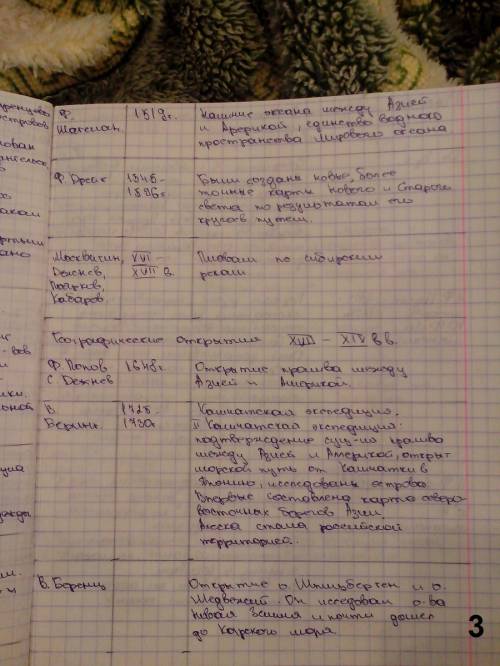 ренцово
островов
Ф. 1519г. Наличие океана между Азией
Магелан. и Америкой, единство водного
пространства Мирового океана
Ф. Дрейк 1546- Были созданы новые, более
1596г. точные карты Нового и Старого
света по результатам его
кругосв. путеш.
Москвитин, XVI - Плавали по сибирским
Дежнев, XVII в. рекам
Поярков,
Хабаров
Географические открытия XVII - XIX в в.
Ф. Попов 1648г. Открытие пролива между
С. Дежнев Азией и Америкой.
В. 1725- Камчатская экспедиция.
Беринг. 1730г. II Камчатская экспедиция:
подтверждение сущ-ия пролива
между Азией и Америкой, открыт
морской путь от Камчатки в
Японию, исследованы острова.
Впервые составлена карта северо
восточных берегов Азии.
Аляска стала российской
территорией.
В. Беренц Открытие о. Шпицберген и о.
Медвежий. Он исследовал о-ва
Новая Земля и почти дошел
до Карского моря.
3